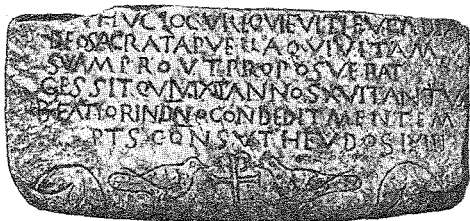 HVC LOCV REQVIEVIT LEVCADIA
DEO SACRATA PVELLA QVI VITAM
SVAM PROVT PROPOSVERAT
GESSIT QVI VIXIT ANNOS XVI TANTV
BEATIOR IN DNO CONDEDIT MENTEM
PTS CONSV THEVDOSI XIII